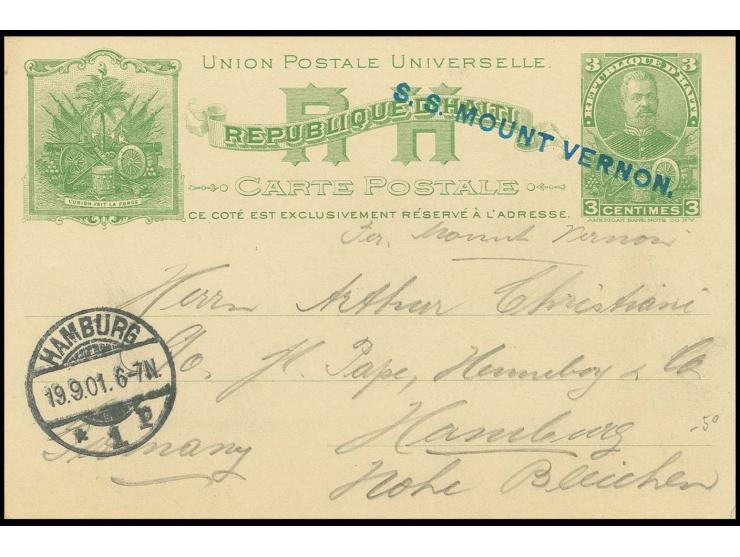 UNION POSTALE UNIVERSELLE.
R H
REPUBLIQUE D'HAITI
CARTE POSTALE
CE COTÉ EST EXCLUSIVEMENT RÉSERVÉ À L'ADRESSE.
L'UNION FAIT LA FORCE
3 3
REPUBLIQUE D'HAITI
3 CENTIMES 3
AMERICAN BANK NOTE CO NY
S. S. MOUNT VERNON.
Per. Mount Vernon
Herrn Arthur Christiani
c/o. H. Pape, Henneboy & Co
Hamburg
Germany
Hohe Bleichen
-50
HAMBURG
19.9.01. 6-7N.
* 1 P